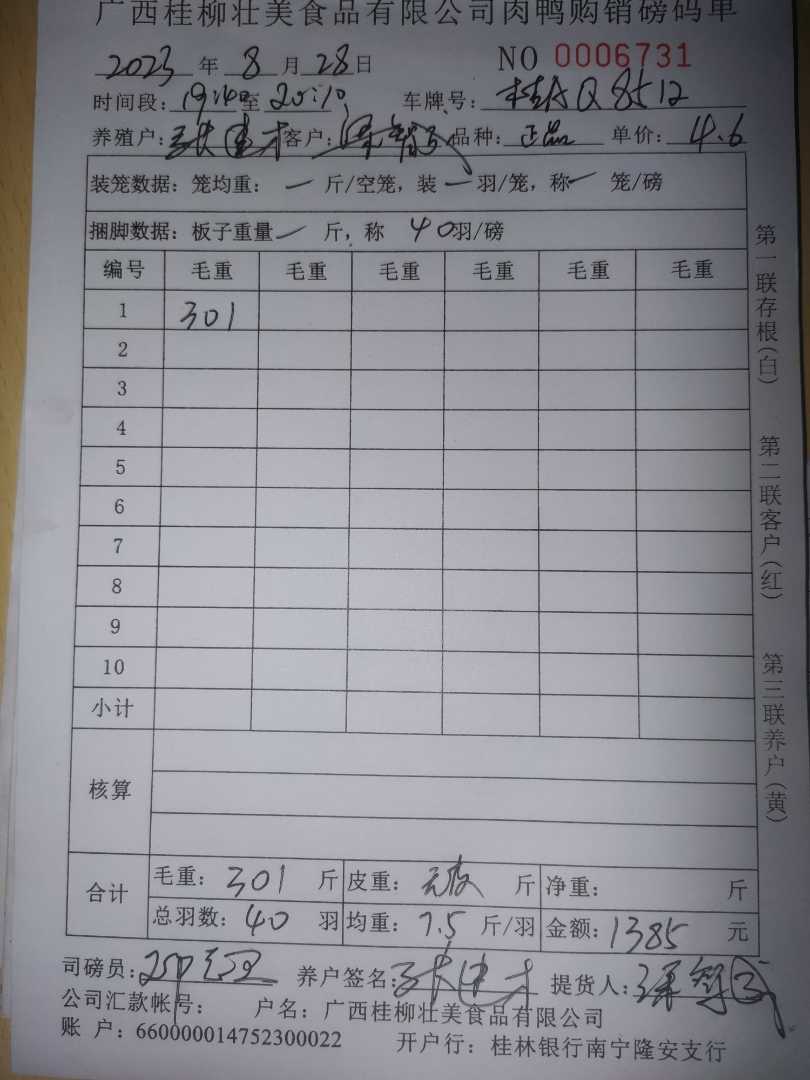 广西桂柳壮美食品有限公司肉鸭购销磅码单
2023 年 8 月 28 日 NO 0006731
时间段: 19:40 至 20:10 车牌号: 桂A Q8512
养殖户: 张建才 客户: 品种: 正品 单价: 4.6
装笼数据: 笼均重: 一 斤/空笼, 装 一 羽/笼, 称 一 笼/磅
捆脚数据: 板子重量 一 斤, 称 40 羽/磅
编号 毛重 毛重 毛重 毛重 毛重 毛重
1 301
2
3
4
5
6
7
8
9
10
小计
核算
合计 毛重: 301 斤 皮重: 无皮 斤 净重: 斤
总羽数: 40 羽 均重: 7.5 斤/羽 金额: 1385 元
司磅员: 养户签名: 张建才 提货人:
公司汇款帐号: 户名: 广西桂柳壮美食品有限公司
账 户: 660000014752300022 开户行: 桂林银行南宁隆安支行
第一联存根(白) 第二联客户(红) 第三联养户(黄)